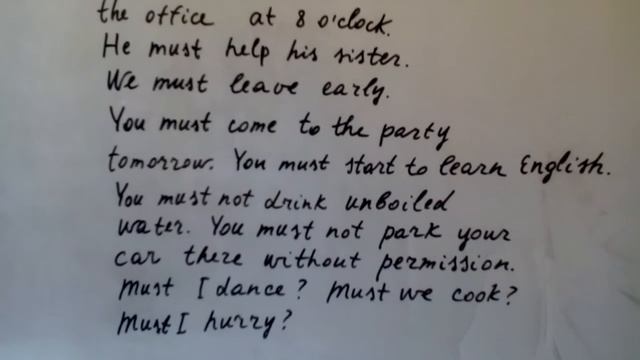 the office at 8 o'clock.
He must help his sister.
We must leave early.
You must come to the party
tomorrow. You must start to learn English.
You must not drink unboiled
water. You must not park your
car there without permission.
Must I dance? Must we cook?
Must I hurry?